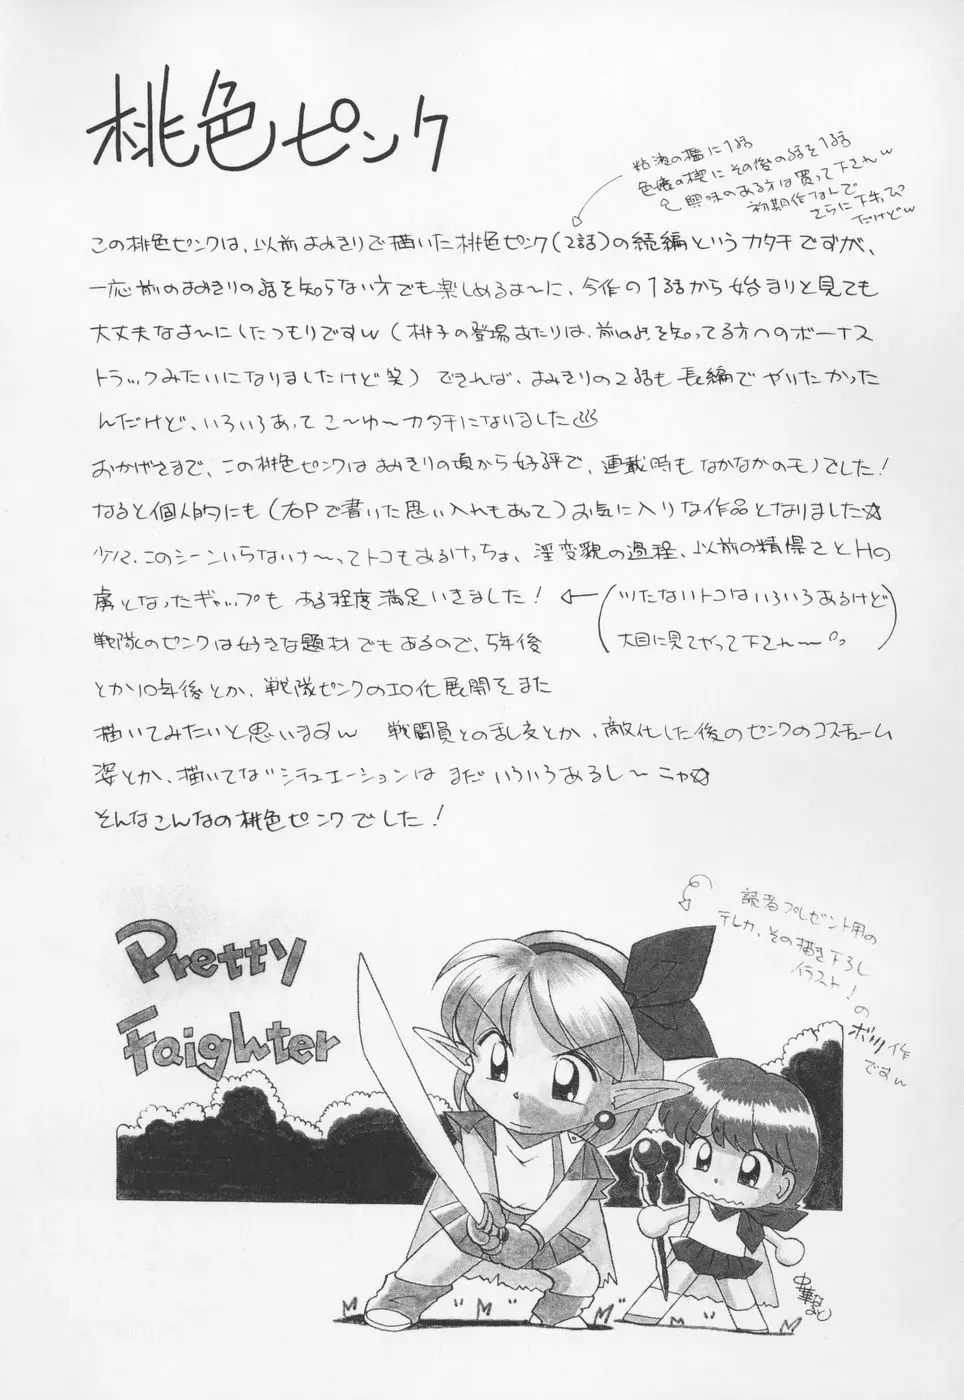 桃色ピンク
粘液の檻に1話
色癒の楔にその後の話を1話
興味のある方は買って下さいw
初期作なんで
さらに下手っぴ
だけどw
この桃色ピンクは、以前よみきりで描いた桃色ピンク(2話)の続編というカタチですが、
一応前のよみきりの話を知らない方でも楽しめるよ〜に、今作の1話から始まりと見ても
大丈夫なよ〜にしたつもりですw(桃子の登場あたりは、前のよみを知ってる方へのボーナス
トラックみたいになりましたけど笑)できれば、よみきりの2話も長編でやりたかった
んだけど、いろいろあってこ〜ゆ〜カタチになりました
おかげさまで、この桃色ピンクはよみきりの頃から好評で、連載時もなかなかのモノでした!
なると個人的にも(右Pで書いた思い入れもあって)お気に入りな作品となりました☆
少々、このシーンいらないけ〜ってトコもあるけっちょ、淫変貌の過程、以前の精悍さとHの
虜となったギャップも ある程度満足いきました!←
(ツたないトコはいろいろあるけど
大目に見てやって下さい〜)
戦隊のピンクは好きな題材でもあるので、5年後
とか10年後とか、戦隊ピンクのエロ化展開をまた
描いてみたいと思いますw 戦闘員との乱交とか、敵化した後のピンクのコスチューム
姿とか、描いてないシチュエーションは まだいろいろあるし〜ニャ☆
そんなこんなの桃色ピンクでした!
読者プレゼント用の
テレカ、その描き下ろし
イラスト!
の
ボツ作
ですw
Pretty
Faighter
中華なると